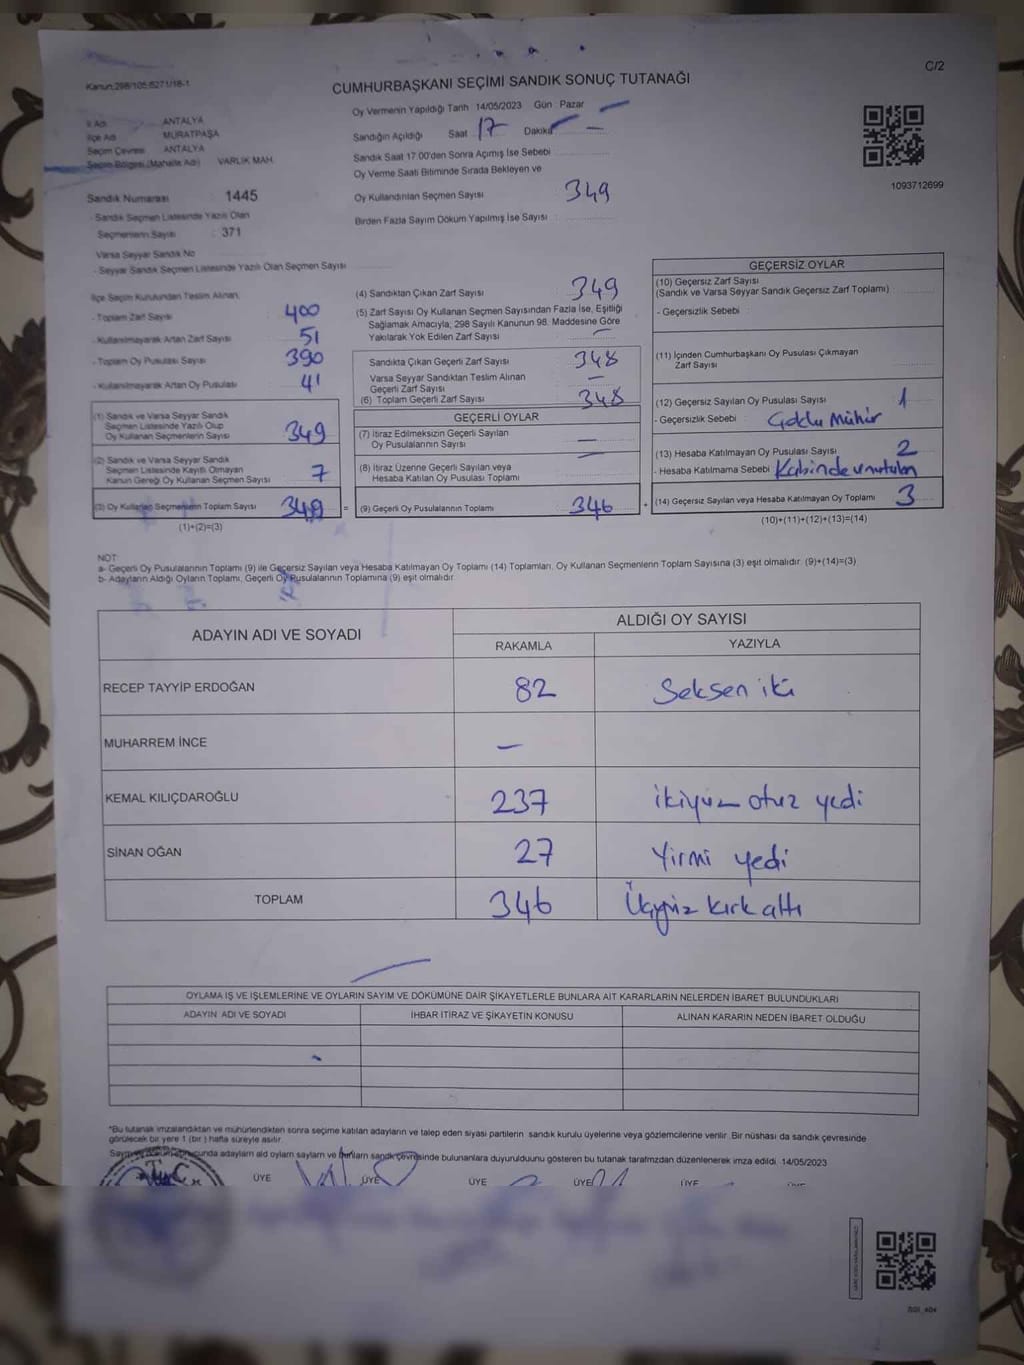 C/2
Kanun:298/105;6271/18-1
CUMHURBAŞKANI SEÇİMİ SANDIK SONUÇ TUTANAĞI
Oy Vermenin Yapıldığı Tarih 14/05/2023 Gün : Pazar
Sandığın Açıldığı Saat 17 Dakika —
Sandık Saat 17:00'den Sonra Açımış İse Sebebi
Oy Verme Saati Bitiminde Sırada Bekleyen ve
Oy Kullandırılan Seçmen Sayısı 349
Birden Fazla Sayım Döküm Yapılmış İse Sayısı
İl Adı : ANTALYA
İlçe Adı : MURATPAŞA
Seçim Çevresi : ANTALYA
Seçim Bölgesi (Mahalle Adı) : VARLIK MAH.
1093712699
Sandık Numarası : 1445
- Sandık Seçmen Listesinde Yazılı Olan
Seçmenlerin Sayısı : 371
Varsa Seyyar Sandık No
- Seyyar Sandık Seçmen Listesinde Yazılı Olan Seçmen Sayısı
İlçe Seçim Kurulundan Teslim Alınan:
- Toplam Zarf Sayısı 400
- Kullanılmayarak Artan Zarf Sayısı 51
- Toplam Oy Pusulası Sayısı 390
- Kullanılmayarak Artan Oy Pusulası 41
(1) Sandık ve Varsa Seyyar Sandık
Seçmen Listesinde Yazılı Olup
Oy Kullanan Seçmenlerin Sayısı 349
(2) Sandık ve Varsa Seyyar Sandık
Seçmen Listesinde Kayıtlı Olmayan
Kanun Gereği Oy Kullanan Seçmen Sayısı 7
(3) Oy Kullanan Seçmenlerin Toplam Sayısı 349 =
(1)+(2)=(3)
(4) Sandıktan Çıkan Zarf Sayısı 349
(5) Zarf Sayısı Oy Kullanan Seçmen Sayısından Fazla İse, Eşitliği
Sağlamak Amacıyla, 298 Sayılı Kanunun 98. Maddesine Göre
Yakılarak Yok Edilen Zarf Sayısı —
Sandıkta Çıkan Geçerli Zarf Sayısı 348
Varsa Seyyar Sandıktan Teslim Alınan
Geçerli Zarf Sayısı —
(6) Toplam Geçerli Zarf Sayısı 348
GEÇERLİ OYLAR
(7) İtiraz Edilmeksizin Geçerli Sayılan
Oy Pusulalarının Sayısı —
(8) İtiraz Üzerine Geçerli Sayılan veya
Hesaba Katılan Oy Pusulası Toplamı —
(9) Geçerli Oy Pusulalarının Toplamı 346 +
GEÇERSİZ OYLAR
(10) Geçersiz Zarf Sayısı
(Sandık ve Varsa Seyyar Sandık Geçersiz Zarf Toplamı)
- Geçersizlik Sebebi :
(11) İçinden Cumhurbaşkanı Oy Pusulası Çıkmayan
Zarf Sayısı
(12) Geçersiz Sayılan Oy Pusulası Sayısı 1
- Geçersizlik Sebebi : Çoklu Mühür
(13) Hesaba Katılmayan Oy Pusulası Sayısı 2
- Hesaba Katılmama Sebebi : Kabinde unutulan
(14) Geçersiz Sayılan veya Hesaba Katılmayan Oy Toplamı 3
(10)+(11)+(12)+(13)=(14)
NOT:
a- Geçerli Oy Pusulalarının Toplamı (9) ile Geçersiz Sayılan veya Hesaba Katılmayan Oy Toplamı (14) Toplamları, Oy Kullanan Seçmenlerin Toplam Sayısına (3) eşit olmalıdır. (9)+(14)=(3)
b- Adayların Aldığı Oyların Toplamı, Geçerli Oy Pusulalarının Toplamına (9) eşit olmalıdır.
ADAYIN ADI VE SOYADI
ALDIĞI OY SAYISI
RAKAMLA YAZIYLA
RECEP TAYYİP ERDOĞAN 82 Seksen iki
MUHARREM İNCE —
KEMAL KILIÇDAROĞLU 237 ikiyüz otuz yedi
SİNAN OĞAN 27 Yirmi yedi
TOPLAM 346 Üçyüz kırk altı
OYLAMA İŞ VE İŞLEMLERİNE VE OYLARIN SAYIM VE DÖKÜMÜNE DAİR ŞİKAYETLERLE BUNLARA AİT KARARLARIN NELERDEN İBARET BULUNDUKLARI
ADAYIN ADI VE SOYADI İHBAR İTİRAZ VE ŞİKAYETİN KONUSU ALINAN KARARIN NEDEN İBARET OLDUĞU
*Bu tutanak imzalandıktan ve mühürlendikten sonra seçime katılan adayların ve talep eden siyasi partilerin sandık kurulu üyelerine veya gözlemcilerine verilir. Bir nüshası da sandık çevresinde
görülecek bir yere 1 (bir ) hafta süreyle asılır.
adayların oyların sayım ve bunların sandık çevresinde bulunanlara duyurulduunu gösteren bu tutanak tarafımızdan düzenlenerek imza edildi. 14/05/2023
ÜYE ÜYE ÜYE ÜYE ÜYE